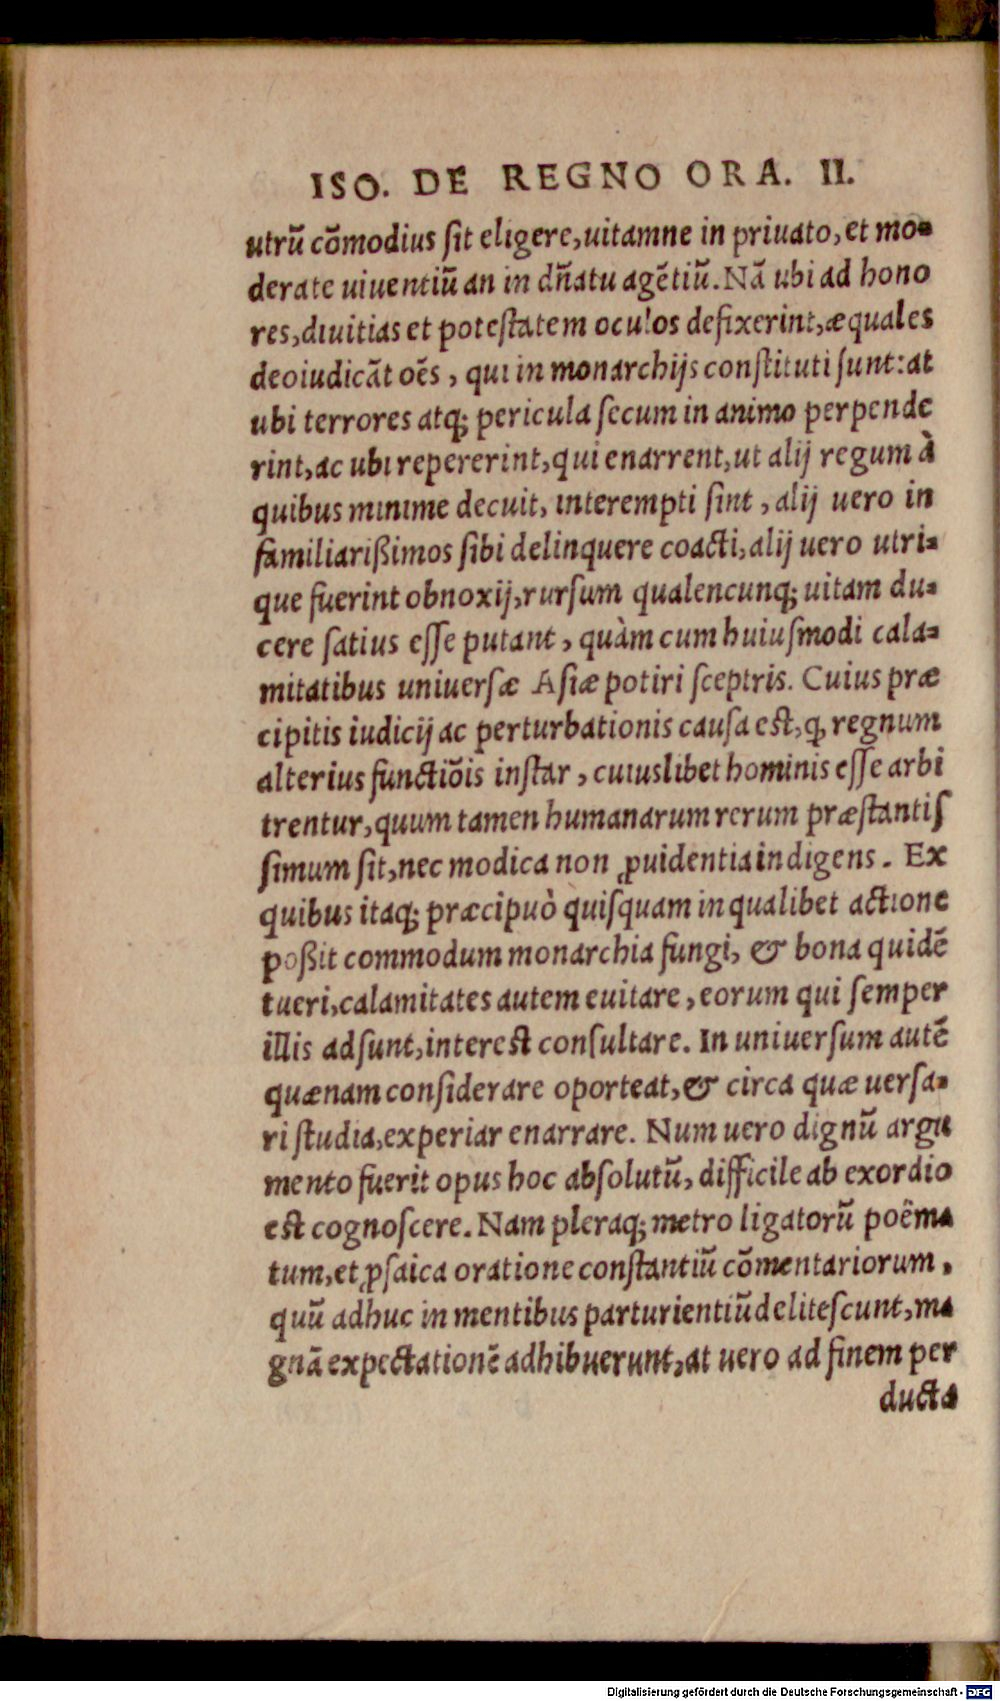 ISO. DE REGNO ORA. II.
utrũ cõmodius ſit eligere, uitamne in priuato, et mo-
derate uiuentiũ an in dñatu agẽtiũ. Nã ubi ad hono
res, diuitias et poteſtatem oculos defixerint, æquales
deo iudicãt oẽs, qui in monarchijs conſtituti ſunt: at
ubi terrores atq; pericula ſecum in animo perpende
rint, ac ubi repererint, qui enarrent, ut alij regum à
quibus minime decuit, interempti ſint, alij uero in
familiarißimos ſibi delinquere coacti, alij uero utri-
que fuerint obnoxij, rurſum qualencunq; uitam du-
cere ſatius eſſe putant, quàm cum huiuſmodi cala-
mitatibus uniuerſæ Aſiæ potiri ſceptris. Cuius præ
cipitis iudicij ac perturbationis cauſa eſt, ꝙ regnum
alterius functiõis inſtar, cuiuslibet hominis eſſe arbi
trentur, quum tamen humanarum rerum præſtantiſ
ſimum ſit, nec modica non ꝓuidentia indigens. Ex
quibus itaq; præcipuò quiſquam in qualibet actione
poßit commodum monarchia fungi, & bona quidẽ
tueri, calamitates autem euitare, eorum qui ſemper
illis adſunt, intereſt conſultare. In uniuerſum autẽ
quænam conſiderare oporteat, & circa quæ uerſa-
ri ſtudia, experiar enarrare. Num uero dignũ argu
mento fuerit opus hoc abſolutũ, difficile ab exordio
eſt cognoſcere. Nam pleraq; metro ligatorũ poëma
tum, et ꝓſaica oratione conſtantiũ cõmentariorum,
quũ adhuc in mentibus parturientiũ deliteſcunt, ma
gnã expectationẽ adhibuerunt, at uero ad finem per
ducta
Digitalisierung gefördert durch die Deutsche Forschungsgemeinschaft - DFG